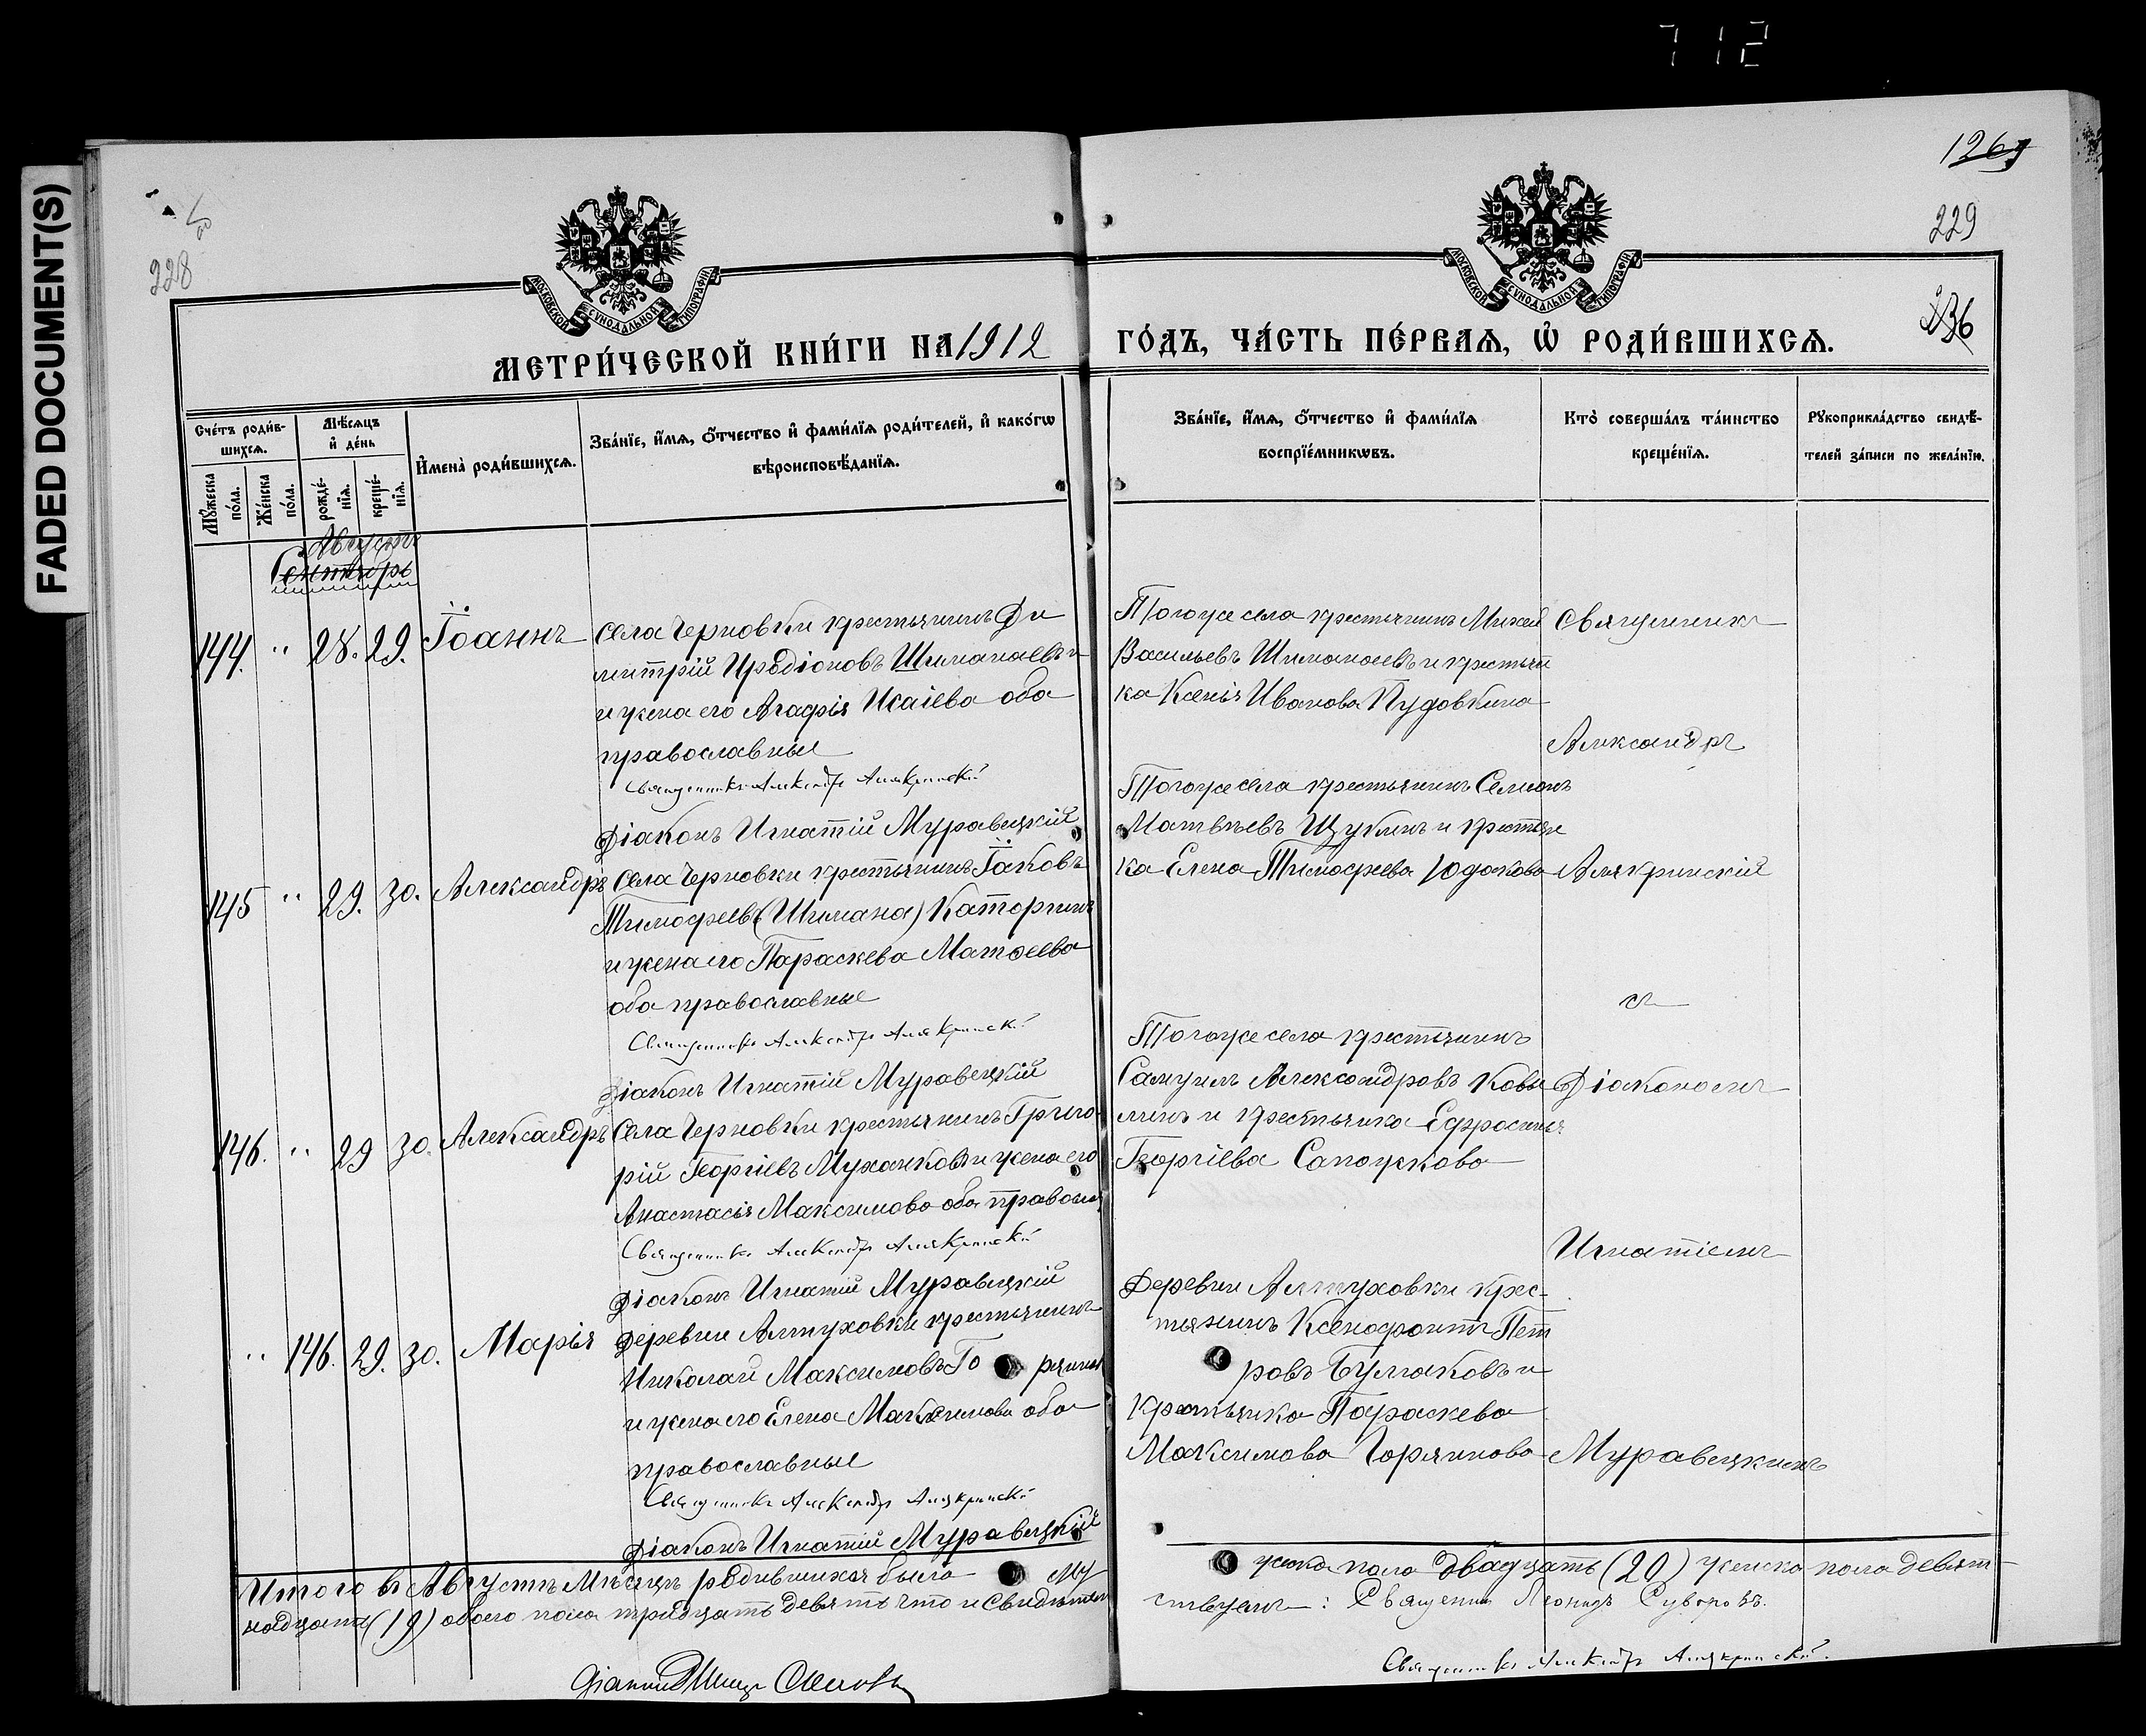 712
FADED DOCUMENT(S)
1269
228
229
236
МОСКОВСКОЙ СѴНОДАЛЬНОЙ ТИПОГРАФІИ
МОСКОВСКОЙ СѴНОДАЛЬНОЙ ТИПОГРАФІИ
МЕТРИ́ЧЕСКОЙ КНИ́ГИ НА 1912 ГО́ДЪ, ЧА́СТЬ ПЕ́РВАѦ, Ѡ҆ РОДИ́ВШИХСѦ.
Сче́тъ роди́в-
шихсѧ.
Мѣ́сѧцъ
и҆ де́нь
И҆мена̀ роди́вшихсѧ.
Зва́нїе, и҆́мѧ, ѻ҆́тчество и҆ фами́лїѧ роди́телей, и҆ како́гѡ
вѣроисповѣ́данїѧ.
Зва́нїе, и҆́мѧ, ѻ҆́тчество и҆ фами́лїѧ
воспрїе́мникѡвъ.
Кто̀ соверша́лъ та́инство
креще́нїѧ.
Рꙋкоприкла́дство свидѣ́-
телей за́писи по жела́нїю.
Мꙋ́жеска
по́ла.
Же́нска
по́ла.
рожде́-
нїѧ.
креще́-
нїѧ.
Августъ
Сентябрь
144. " 28. 29. Іоаннъ
Села Черновки крестьянинъ Ди
митрій Иродіоновъ Шиманаевъ и
и жена его Агафія Исаіева оба
православные
Священникъ Александръ Алякринскій
Діаконъ Игнатій Муравецкій
Тогоже села крестьянинъ Михаил
Васильевъ Шиманаевъ и крестьян
ка Ксенія Иванова Пудовкина
Священникъ
Александръ
145 " 29. 30. Александръ
Села Черновки крестьянинъ Іаковъ
Тимофеевъ (Шимана) Каторгинъ
и жена его Параскева Матѳеева
оба православные
Священникъ Александръ Алякринскій
Діаконъ Игнатій Муравецкій
Тогоже села крестьянинъ Семионъ
Матвѣевъ Щукинъ и крестьян
ка Елена Тимофеева Юдакова
Алякринскій
съ
146. " 29 30. Александръ
Села Черновки крестьянинъ Григо
рій Георгіевъ Муханковъ и жена его
Анастасія Максимова оба правосл
Священникъ Александръ Алякринскій
Діаконъ Игнатій Муравецкій
Тогоже села крестьянинъ
Самуилъ Александровъ Ковы
линъ и крестьянка Ефросинья
Георгіева Сапожкова
Діакономъ
Игнатіемъ
" 146. 29. 30. Марія
Деревни Алтуховки крестьянинъ
Николай Максимовъ Го ряинъ
и жена его Елена Максимова оба
православные
Священникъ Александръ Алякринскій
Діаконъ Игнатій Муравецкій
Деревни Алтуховки крес-
тьянинъ Ксенофонтъ Пет
ровъ Булгаковъ и
крестьянка Параскева
Максимова Горяинова
Муравецкимъ
Итого въ Августѣ Мѣсяцѣ родившихся было му жска пола двадцать (20) женска пола девят
надцать (19) обоего пола тридцать девять что и свидѣтель ствуемъ: Священникъ Леонидъ Суворовъ.
Священникъ Александръ Алякринскій.